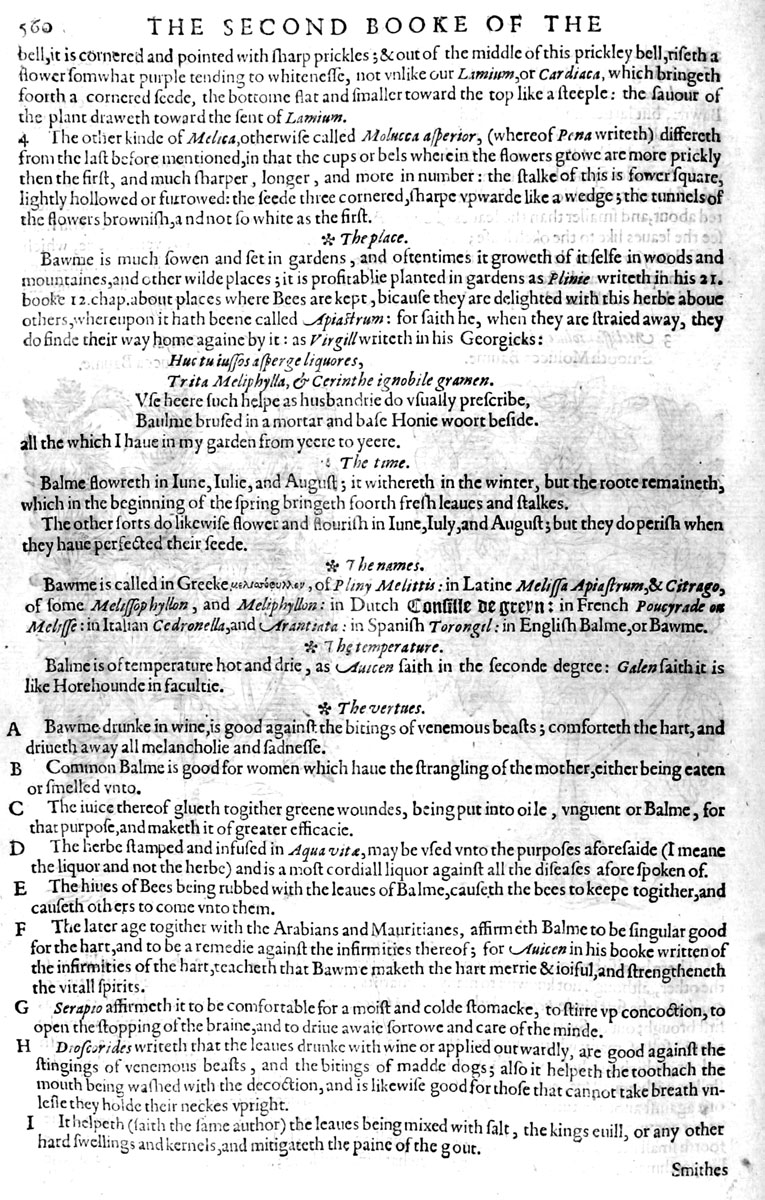 560 THE SECOND BOOKE OF THE
bell, it is cornered and pointed with ſharp prickles; & out of the middle of this prickley bell, riſeth a
flower ſomwhat purple tending to whiteneſſe, not vnlike our Lamium, or Cardiaca, which bringeth
foorth a cornered ſeede, the bottome flat and ſmaller toward the top like a ſteeple: the ſauour of
the plant draweth toward the ſent of Lamium.
4 The other kinde of Melica, otherwiſe called Molucca aſperior, (whereof Pena writeth) differeth
from the laſt before mentioned, in that the cups or bels wherein the flowers growe are more prickly
then the firſt, and much ſharper, longer, and more in number: the ſtalke of this is fower ſquare,
lightly hollowed or furrowed: the ſeede three cornered, ſharpe vpwarde like a wedge; the tunnels of
the flowers browniſh, and not ſo white as the firſt.
❧ The place.
Bawme is much ſowen and ſet in gardens, and oftentimes it groweth of it ſelfe in woods and
mountaines, and other wilde places; it is profitablie planted in gardens as Plinie writeth in his 21.
booke 12. chap. about places where Bees are kept, bicauſe they are delighted with this herbe aboue
others, whereupon it hath beene called Apiaſtrum: for ſaith he, when they are ſtraied away, they
do finde their way home againe by it: as Virgill writeth in his Georgicks:
Huc tu iuſſos aſperge liquores,
Trita Meliphylla, & Cerinthe ignobile gramen.
Vſe heere ſuch helpe as husbandrie do vſually preſcribe,
Baulme bruſed in a mortar and baſe Honie woort beſide.
all the which I haue in my garden from yeere to yeere.
The time.
Balme flowreth in Iune, Iulie, and Auguſt; it withereth in the winter, but the roote remaineth,
which in the beginning of the ſpring bringeth foorth freſh leaues and ſtalkes.
The other ſorts do likewiſe flower and flouriſh in Iune, Iuly, and Auguſt; but they do periſh when
they haue perfected their ſeede.
❧ The names.
Bawme is called in Greeke, of Pliny Melittis: in Latine Meliſſa Apiaſtrum, & Citrago,
of ſome Meliſſophyllon, and Meliphyllon: in Dutch Conſille de greyn: in French Poucyrade ou
Meliſſe: in Italian Cedronella, and Arantiata: in Spaniſh Torongil: in Engliſh Balme, or Bawme.
❧ The temperature.
Balme is of temperature hot and drie, as Auicen ſaith in the ſeconde degree: Galen ſaith it is
like Horehounde in facultie.
❧ The vertues.
A Bawme drunke in wine, is good againſt the bitings of venemous beaſts; comforteth the hart, and
driueth away all melancholie and ſadneſſe.
B Common Balme is good for women which haue the ſtrangling of the mother, either being eaten
or ſmelled vnto.
C The iuice thereof glueth togither greene woundes, being put into oile, vnguent or Balme, for
that purpoſe, and maketh it of greater efficacie.
D The herbe ſtamped and infuſed in Aqua vitæ, may be vſed vnto the purpoſes aforeſaide (I meane
the liquor and not the herbe) and is a moſt cordiall liquor againſt all the diſeaſes afore ſpoken of.
E The hiues of Bees being rubbed with the leaues of Balme, cauſeth the bees to keepe togither, and
cauſeth others to come vnto them.
F The later age together with the Arabians and Mauritianes, affirmeth Balme to be ſingular good
for the hart, and to be a remedie againſt the infirmities thereof; for Auicen in his booke written of
the infirmities of the hart, teacheth that Bawme maketh the hart merrie & ioiful, and ſtrengtheneth
the vitall ſpirits.
G Serapio affirmeth it to be comfortable for a moiſt and colde ſtomacke, to ſtirre vp concoction, to
open the ſtopping of the braine, and to driue awaie ſorrowe and care of the minde.
H Dioſcorides writeth that the leaues drunke with wine or applied outwardly, are good againſt the
ſtingings of venemous beaſts, and the bitings of madde dogs; alſo it helpeth the toothach the
mouth being waſhed with the decoction, and is likewiſe good for thoſe that cannot take breath vn-
leſſe they holde their neckes vpright.
I It helpeth (ſaith the ſame author) the leaues being mixed with ſalt, the kings euill, or any other
hard ſwellings and kernels, and mitigateth the paine of the gout.
Smithes